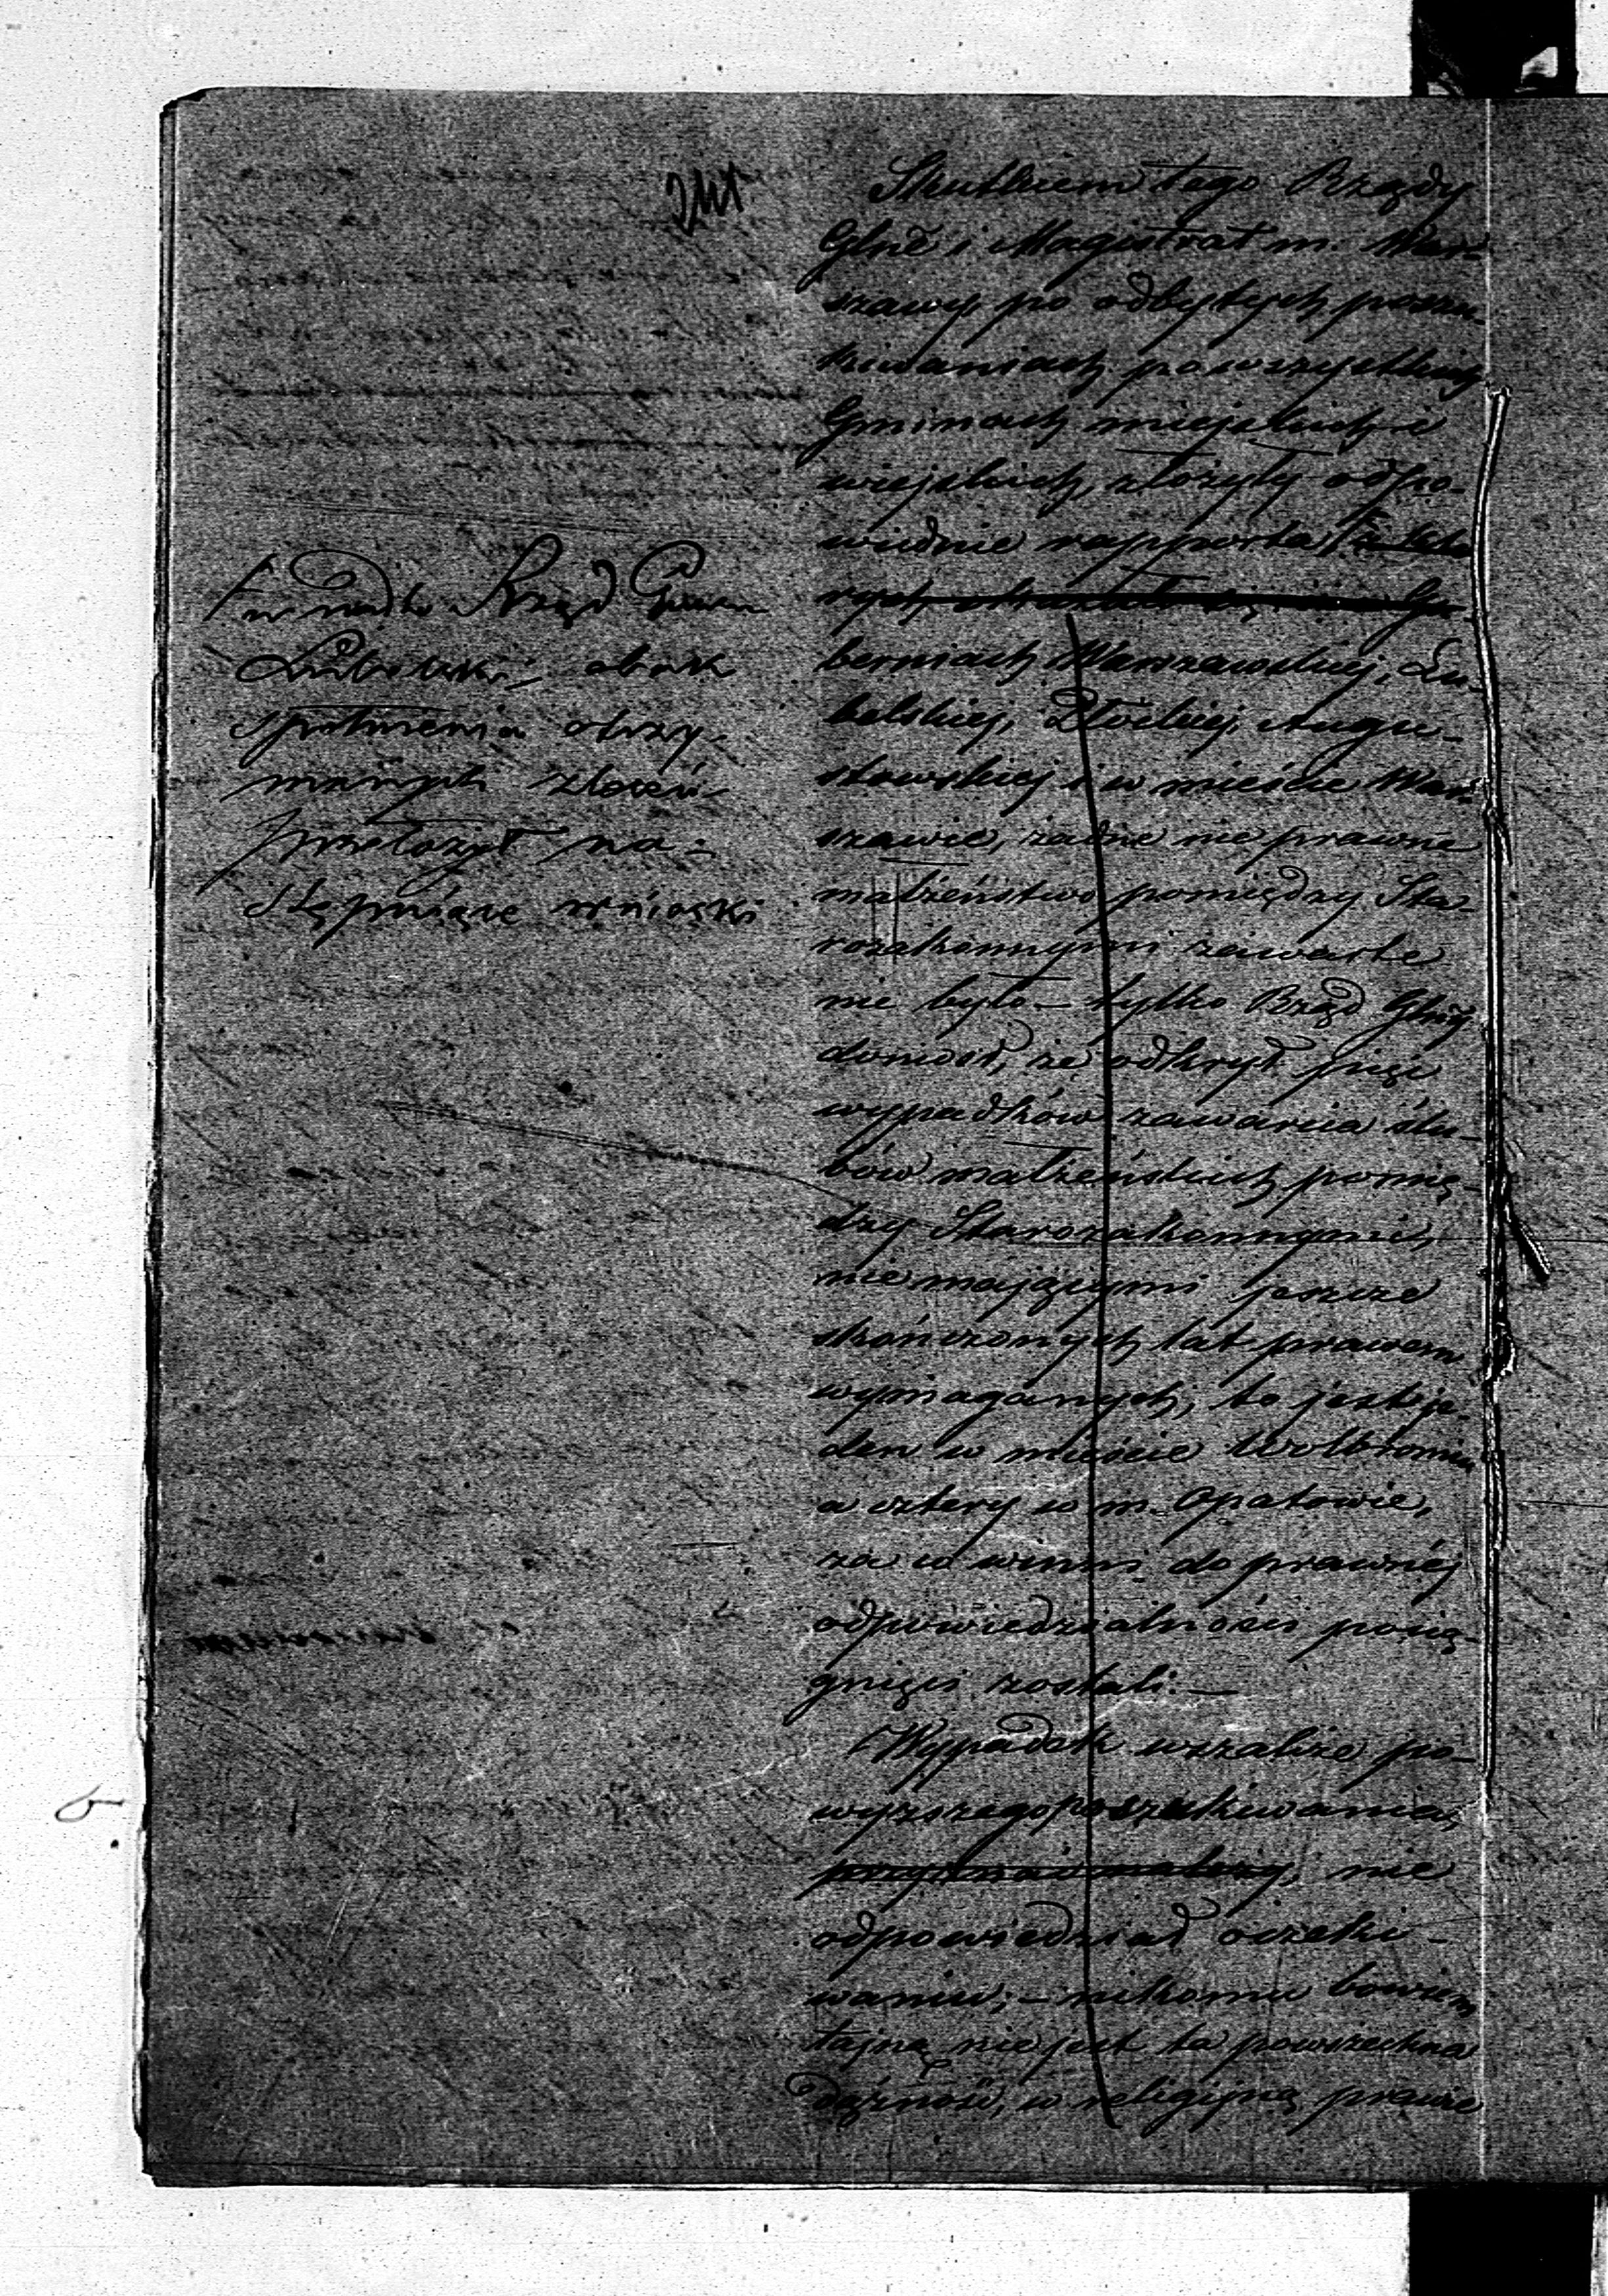 Skutkiem tego Rządy
Glne i Magistrat m. War-
szawy, po odbytych poszu-
kiwaniach po wszystkich
Gminach miejskich i
wiejskich, złożyły odpo-
wiednie rapporta, z któ-
rych okazało się że w Gu-
berniach Warszawskiej, Lu-
belskiej, Płockiej, Augu-
stowskiej i w mieście War-
szawie, żadne nie prawne
małżeństwo pomiędzy Sta-
rozakonnymi zawarte
nie było – tylko Rząd Glny
doniósł, że odkrył pięć
wypadków zawarcia ślu-
bów małżeńskich pomię-
dzy Starozakonnymi,
nie mającymi jeszcze
skończonych lat prawem
wymaganych, to jest je-
den w mieście Wolbromiu
a cztery w m. Opatowie,
za co winni do prawnéj
odpowiedzialności pocią-
gnięci zostali. –
Wypadek wszakże po-
wyższego poszukiwania,
przyznać należy, nie
odpowiedział oczeki-
waniu; – nikomu bowiem
tajną nie jest ta powszechna
dążność, w religijną prawie
nadto Rząd Guber
Lubelski, obok
spełnienia otrzy-
manych zleceń
przełożył na-
stępujące wnioski